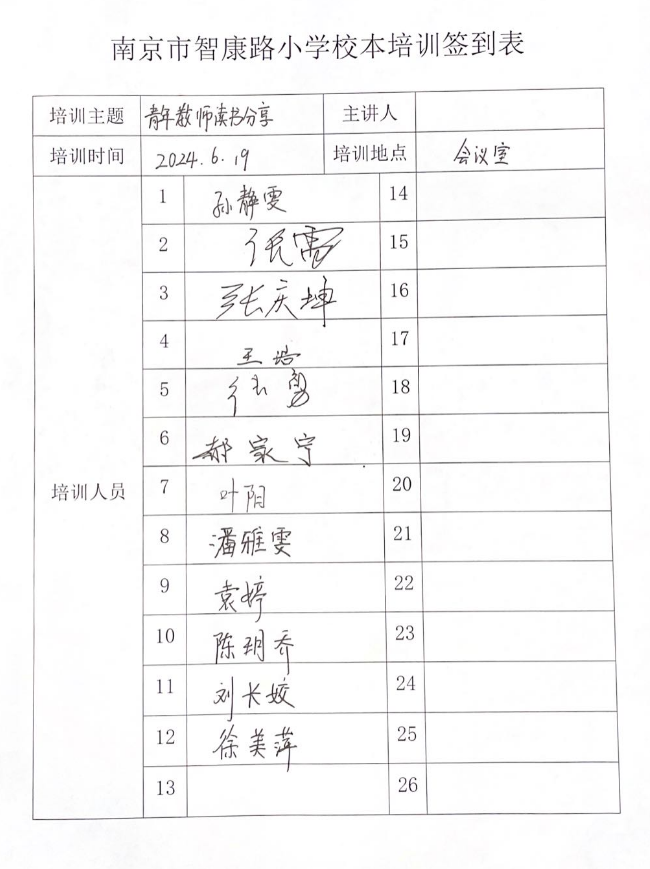 南京市智康路小学校本培训签到表
培训主题 青年教师读书分享 主讲人
培训时间 2024.6.19 培训地点 会议室
培训人员
1 孙静雯 14
2 15
3 张庆坤 16
4 王浩 17
5 18
6 郝家宁 19
7 叶阳 20
8 潘雅雯 21
9 袁婷 22
10 陈玥乔 23
11 刘长姣 24
12 徐美萍 25
13 26